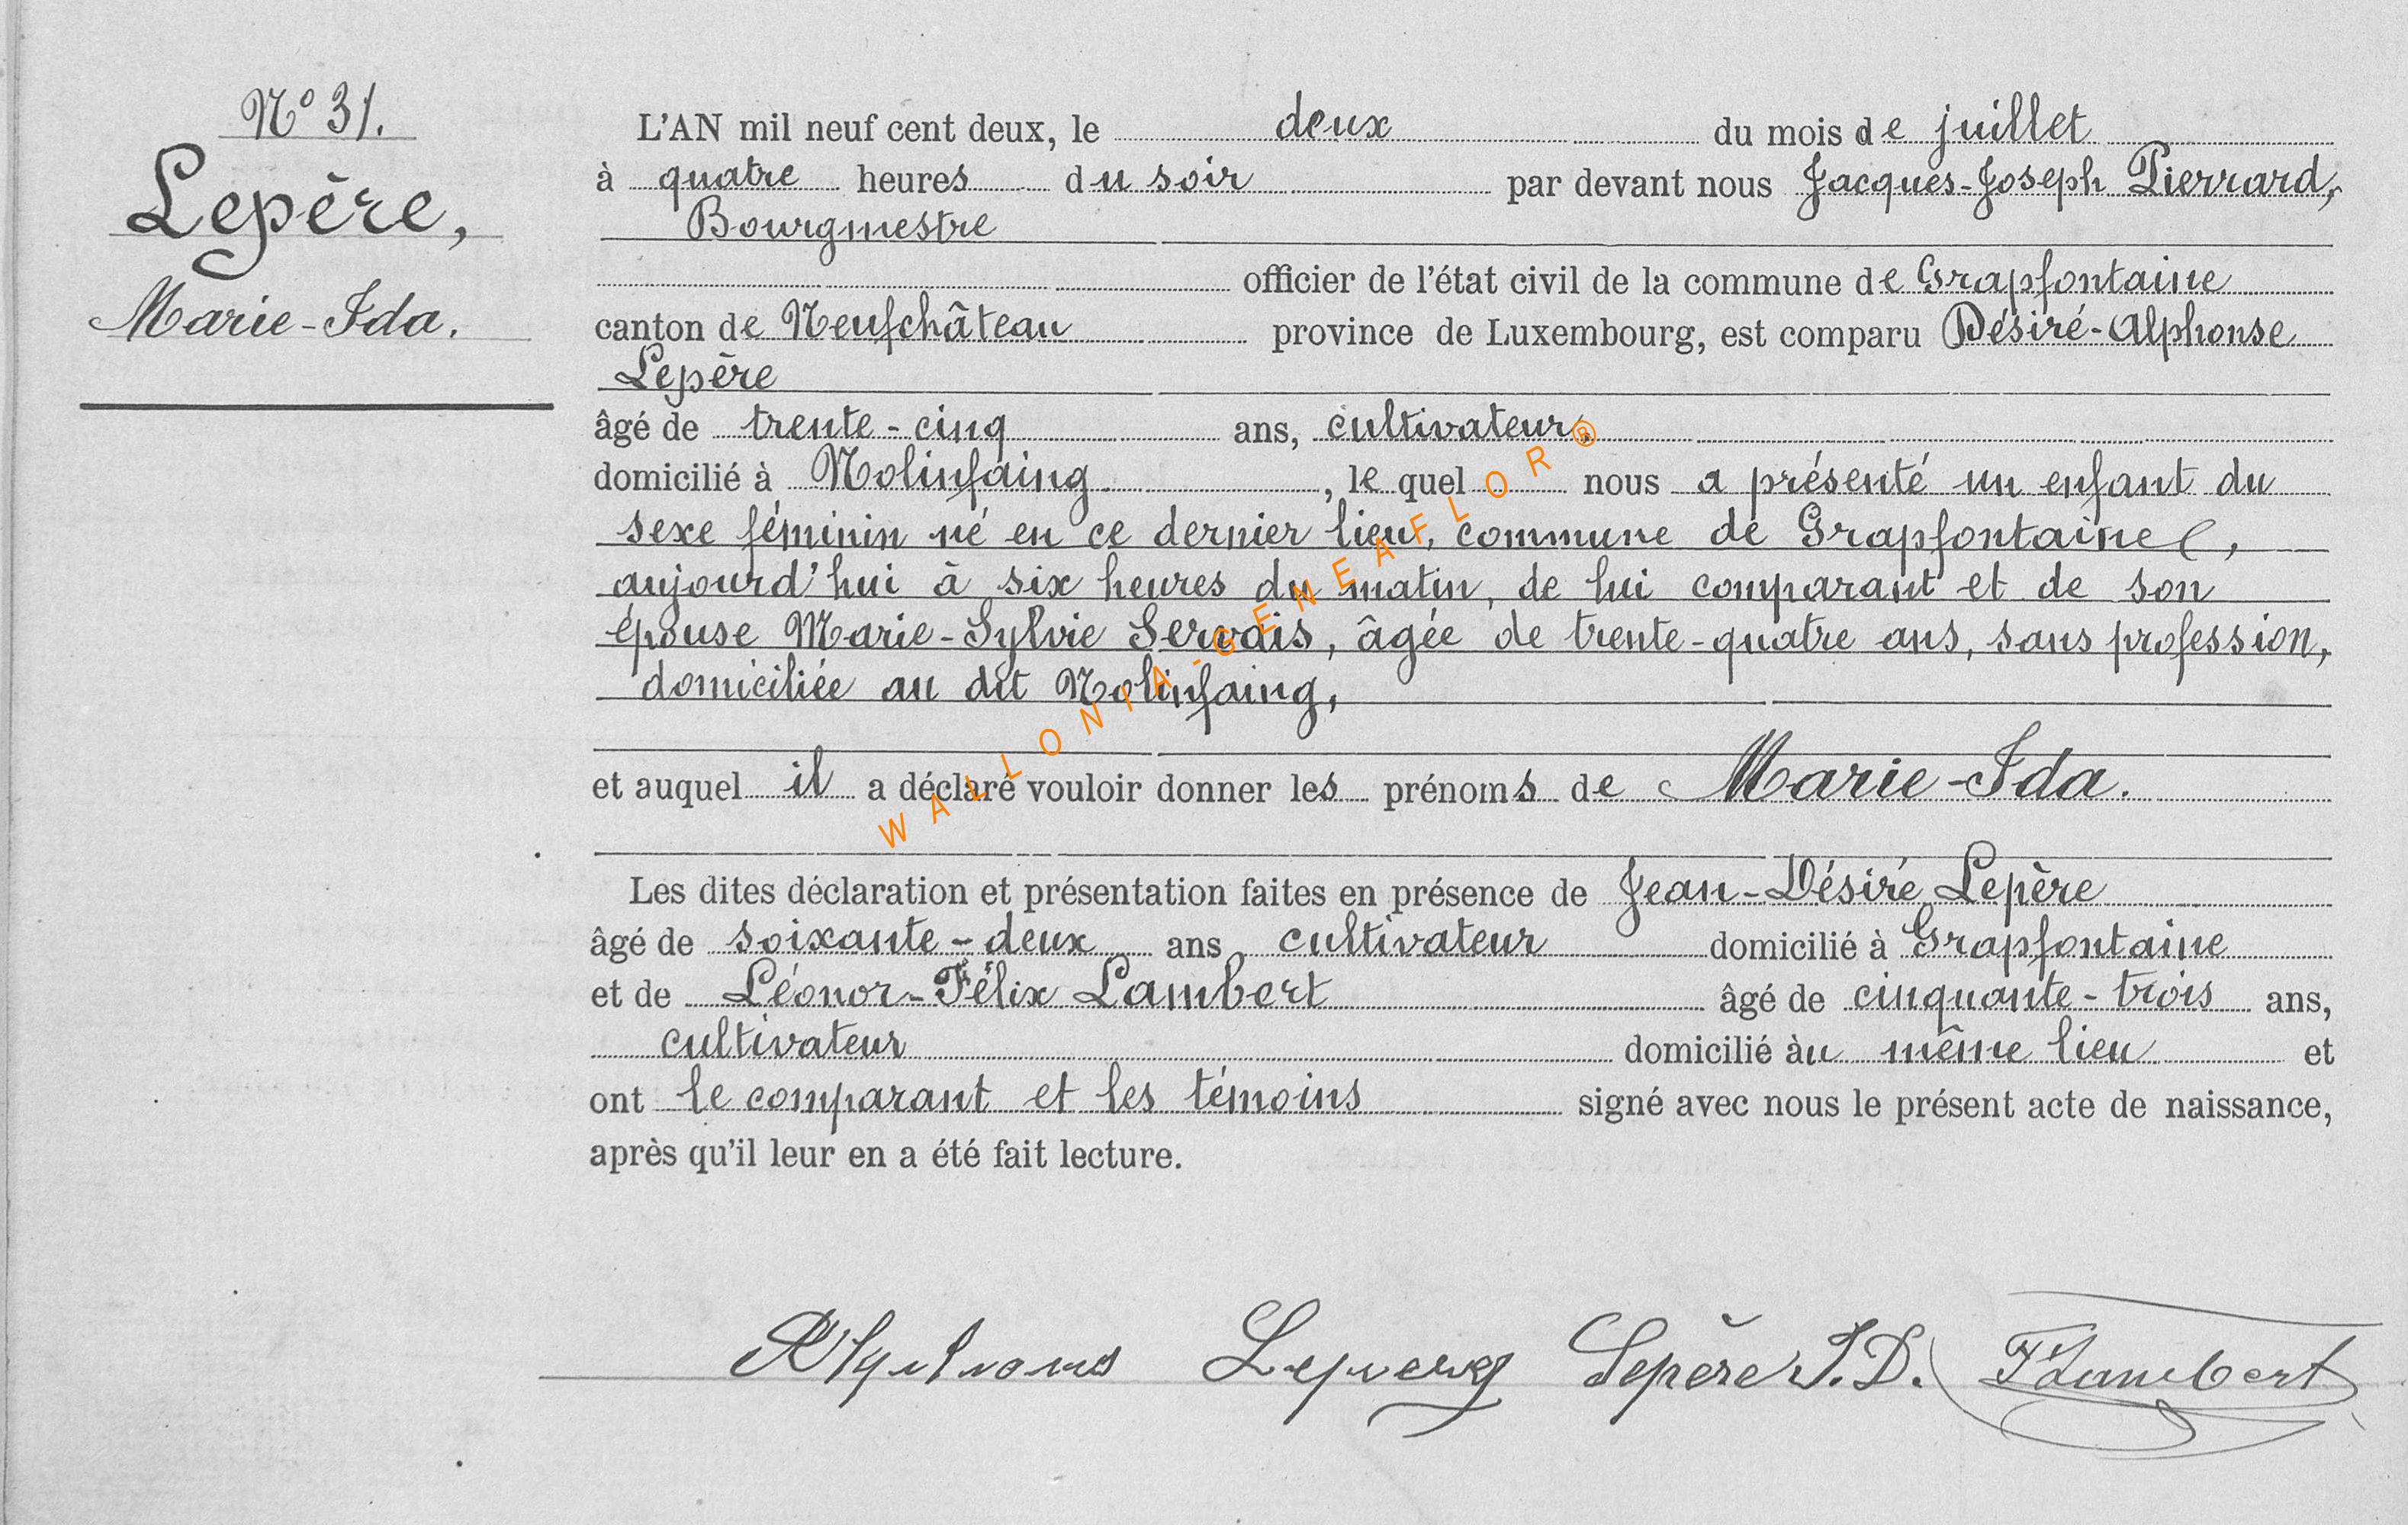 N° 31.
Lepère,
Marie-Ida.
L'AN mil neuf cent deux, le deux du mois de juillet
à quatre heures du soir par devant nous Jacques-Joseph Pierrard,
Bourgmestre
officier de l'état civil de la commune de Grapfontaine
canton de Neufchâteau province de Luxembourg, est comparu Désiré-Alphonse
Lepère
âgé de trente-cinq ans, cultivateur,
domicilié à Nolinfaing, le quel nous a présenté un enfant du
sexe féminin né en ce dernier lieu, commune de Grapfontaine,
aujourd'hui à six heures du matin, de lui comparant et de son
épouse Marie-Sylvie Servais, âgée de trente-quatre ans, sans profession,
domiciliée au dit Nolinfaing,
et auquel il a déclaré vouloir donner les prénoms de Marie-Ida.
Les dites déclaration et présentation faites en présence de Jean-Désiré Lepère
âgé de soixante-deux ans cultivateur domicilié à Grapfontaine
et de Léonor-Félix Lambert âgé de cinquante-trois ans,
cultivateur domicilié àu même lieu et
ont le comparant et les témoins signé avec nous le présent acte de naissance,
après qu'il leur en a été fait lecture.
Lepère J.D. F Lambert
WALLONIA-GENEAFLOR®